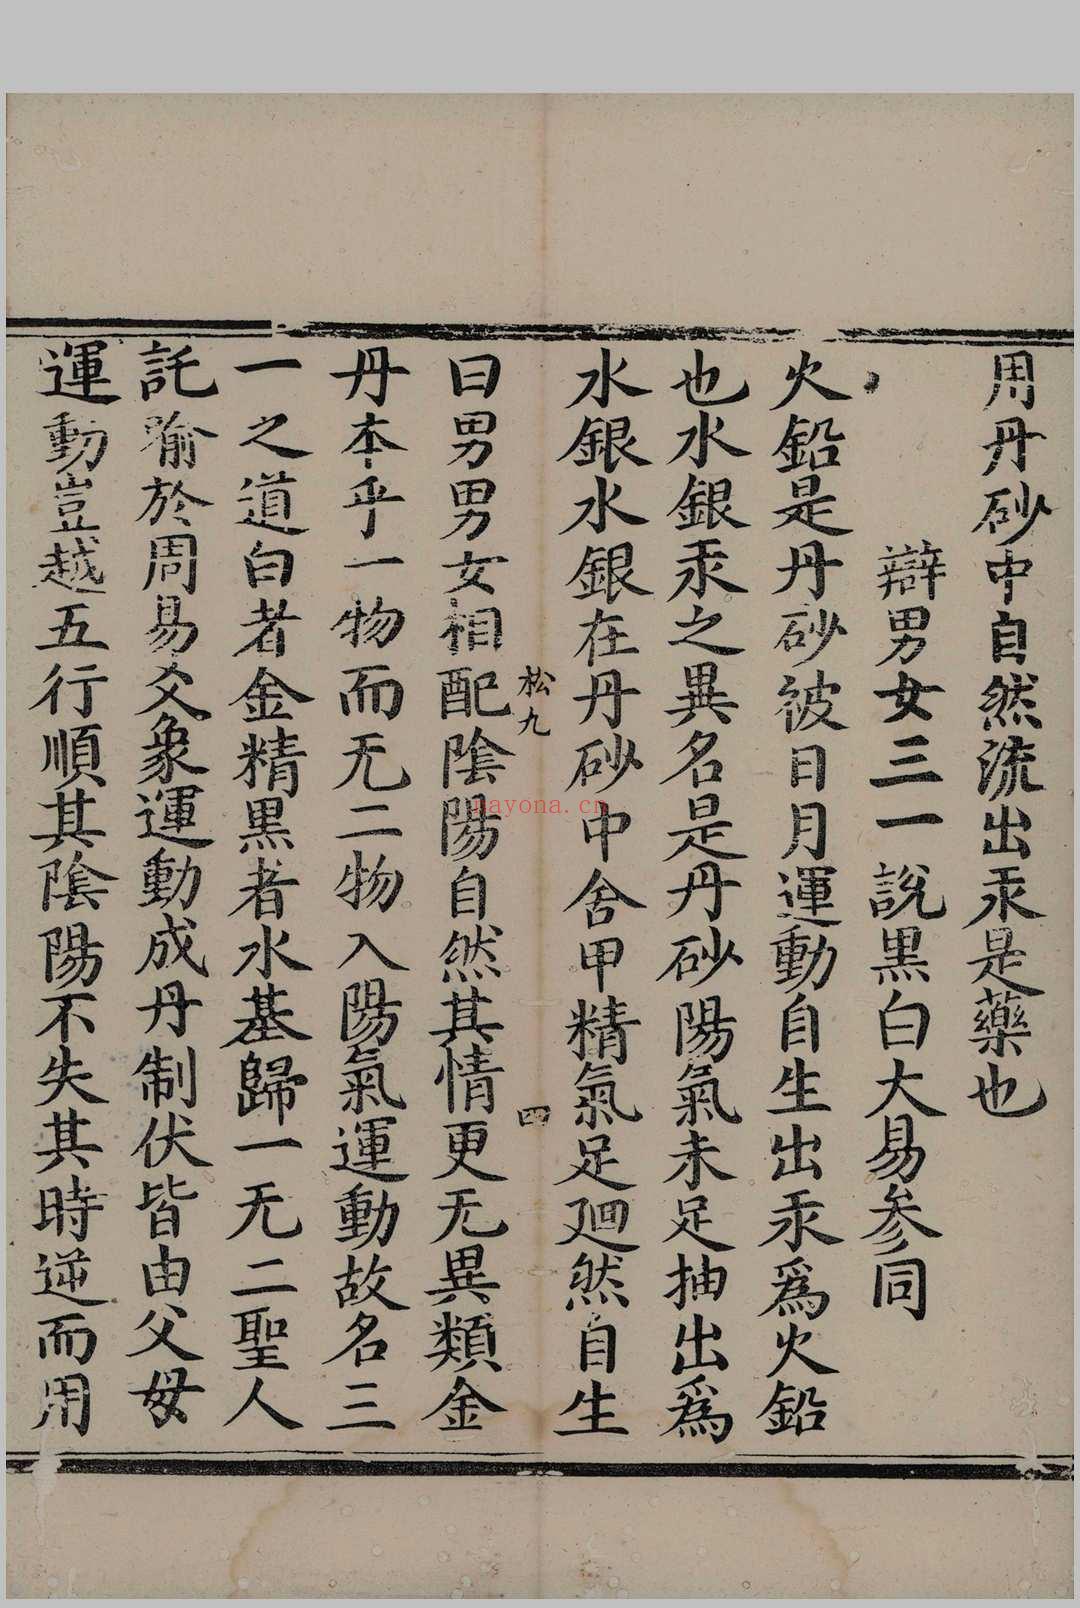 周丹砂中自然流出汞是藥也
辯男女三一說黑白大易參同
火鉛是丹砂被日月運動自生出汞爲火鉛
也水銀汞之異名是丹砂陽氣未足抽出爲
水銀水銀在丹砂中含甲精氣足廻然自生
松九
四
曰男男女相配陰陽自然其情更无異類金
丹本乎一物而无二物入陽氣運動故名三
一之道白者金精黑者水基歸一无二聖人
託喻於周易爻象運動成丹制伏皆由父母
運動豈越五行順其陰陽不失其時逆而用
nayona.cn